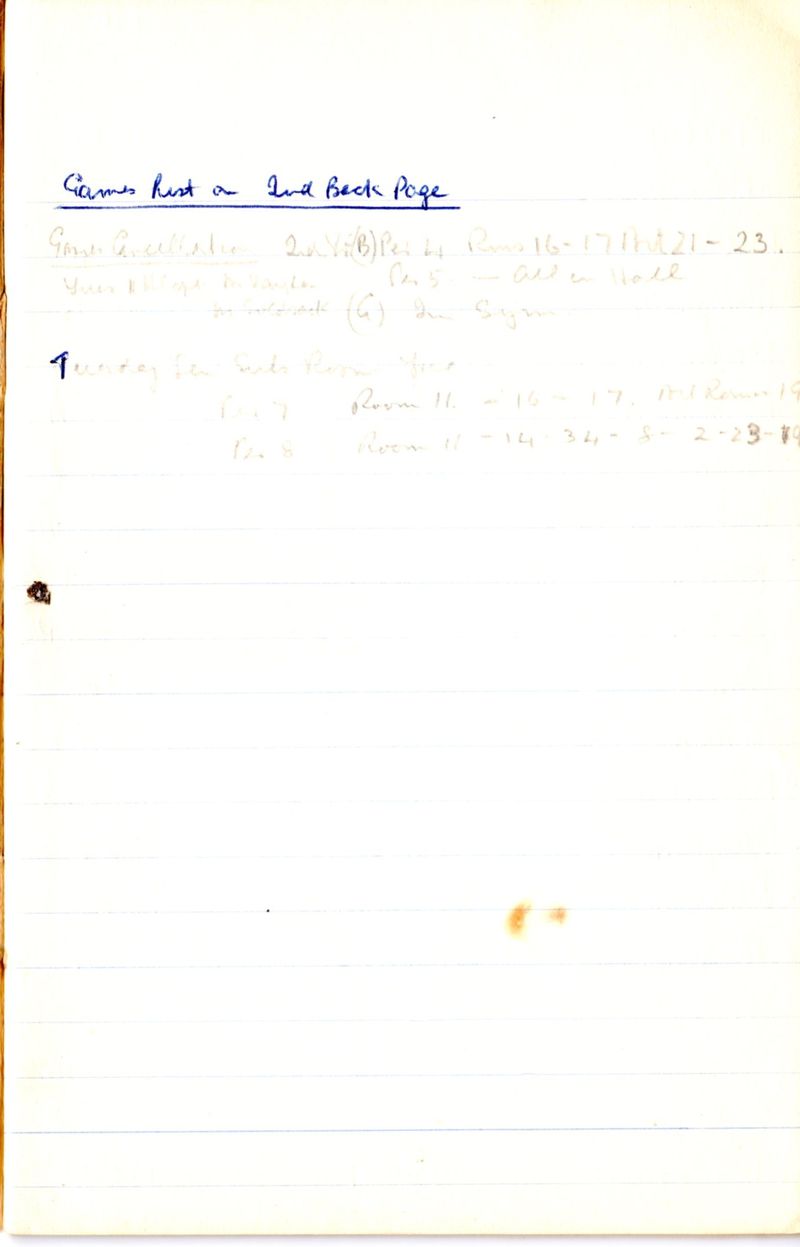 Games List on 2nd Back Page
Games Cancellation 2nd Yr (B) Per 4 Rms 16-17 Art 21-23.
Per 5 - All in Hall
(G) In Gym
Tuesday Room
Per 7 Room 11 - 16 - 17. Art Room 19
Per 8 Room 11 - 14 - 34 - 8 - 2 - 23 - 19